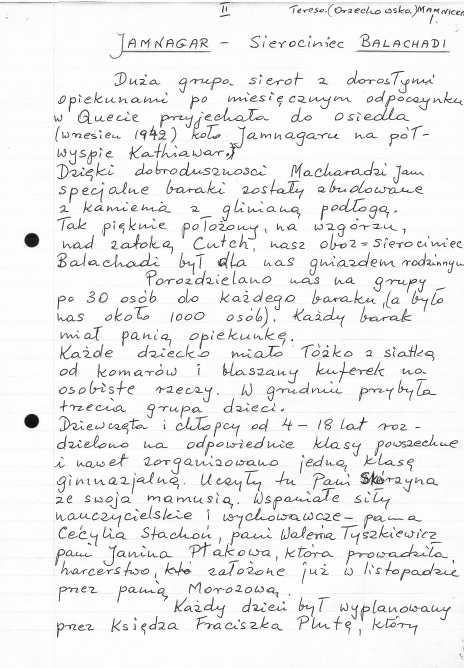 II
Teresa (Orzechowska) MAMNICKA
1.
JAMNAGAR – Sierociniec BALACHADI
Duża grupa sierot z dorosłymi
opiekunami po miesięcznym odpoczynku
w Quecie przyjechała do osiedla
(wrzesień 1942) koło Jamnagaru na pół-
wyspie Kathiawar.
Dzięki dobroduszności Macharadzi Jam
specjalne baraki zostały zbudowane
z kamienia z glinianą podłogą.
Tak pięknie położony, na wzgórzu,
nad zatoką Cutch, nasz obóz = sierociniec
Balachadi był dla nas gniazdem rodzinnym
Porozdzielano nas na grupy
po 30 osób do każdego baraku, (a było
nas około 1000 osób). Każdy barak
miał panią opiekunkę.
Każde dziecko miało łóżko z siatką
od komarów i blaszany kuferek na
osobiste rzeczy. W grudniu przybyła
trzecia grupa dzieci.
Dziewczęta i chłopcy od 4 – 18 lat roz-
dzielono na odpowiednie klasy powszechne
i nawet zorganizowano jedną klasę
gimnazjalną. Uczyły tu Pani Skórzyna
ze swoja mamusią. Wspaniałe siły
nauczycielskie i wychowawcze – pama
Cecylia Stachoń, pani Waleria Tyszkiewicz
pani Janina Ptakowa, która prowadziła
harcerstwo, założone już w listopadzie
przez panią Morozową.
Każdy dzień był wyplanowany
przez Księdza Fraciszka Plutę, który